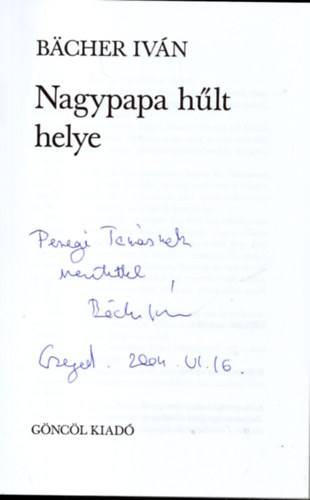 BÄCHER IVÁN
Nagypapa hűlt
helye
Peregi Tamásnak
szeretettel
Bächer Iván
Szeged. 2004. VI. 16.
GÖNCÖL KIADÓ